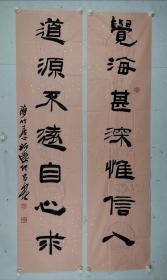 覺海甚深惟信入
道源不遠自心求